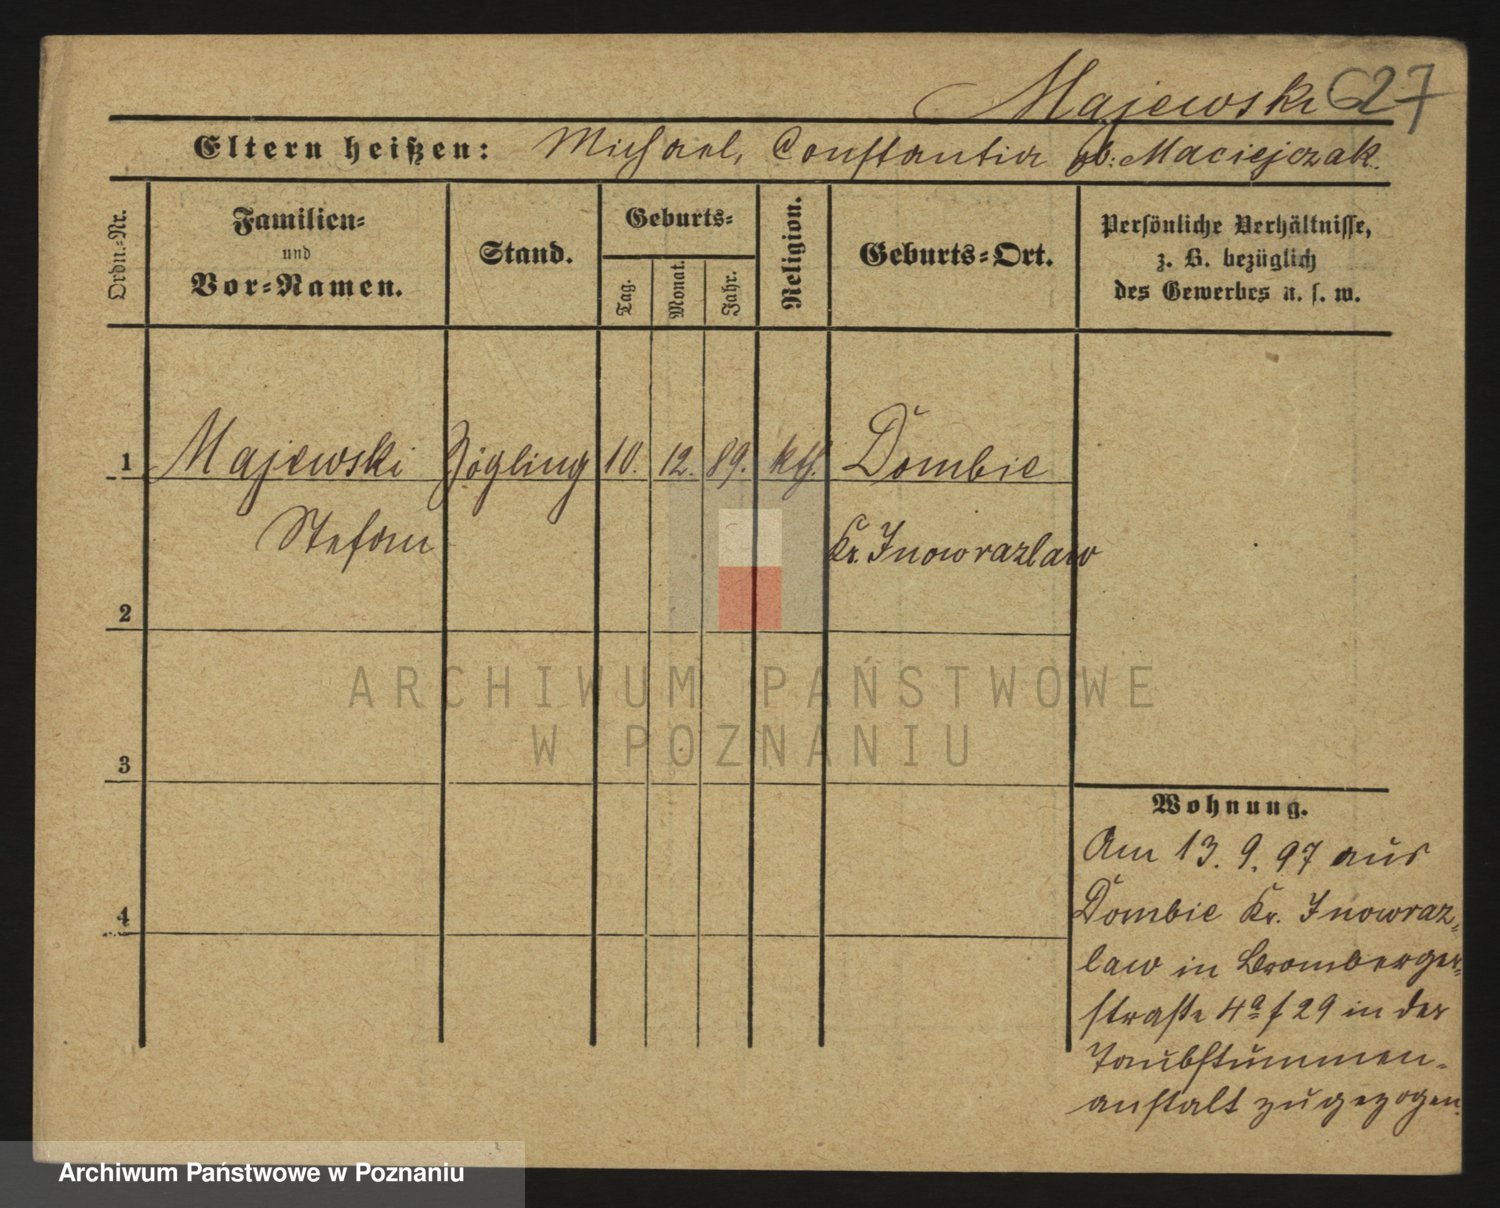 Majewski 627
Eltern heißen: Michael, Constantia gb. Maciejczak.
Ordn.-Nr.
Familien-
und
Vor-Namen.
Stand.
Geburts-
Tag.
Monat.
Jahr.
Religion.
Geburts-Ort.
Persönliche Verhältnisse,
z. B. bezüglich
des Gewerbes u. s. w.
1 Majewski Zögling 10. 12. 89. kth. Dombie
Stefan Kr. Inowrazlaw
2
ARCHIWUM PAŃSTWOWE
W POZNANIU
3
Wohnung.
Am 13. 9. 97 aus
Dombie Kr. Inowraz-
law in Bromberger-
straße 4a f 29 in der
4
Taubstummen-
anstalt zugezogen.
Archiwum Państwowe w Poznaniu